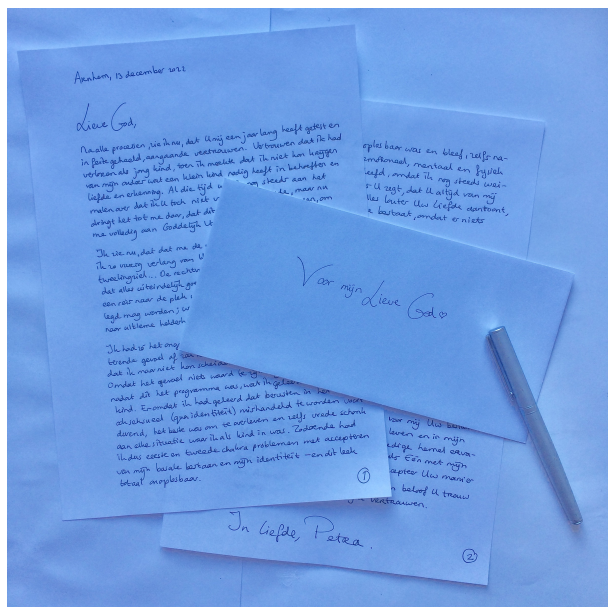 Arnhem, 13 december 2022
Lieve God,
Na alle processen, zie ik nu, dat U mij een jaar lang heeft getest en
in feite geheeld, aangaande vertrouwen. Vertrouwen dat ik had
verloren als jong kind, toen ik merkte dat ik niet kon krijgen
van mijn ouders wat een klein kind nodig heeft in behoeften en
liefde en erkenning. Al die tijd nog steeds aan het
malen over dat ik U toch niet maar nu
dringt het tot me door, dat dit om
me volledig aan Goddelijk
Ik zie nu, dat dat me de
ik zo vurig verlang van
tweelingziel... De rechter
dat alles uiteindelijk
een reis naar de plek
legd mag worden;
naar ultieme helderh
Ik had zo het
terende gevoel of
dat ik maar niet kon scheiden
Omdat het gevoel niets waard te
nadat dit het programma was, wat ik geleerd
kind. En omdat ik had geleerd dat berusten in het
(qua identiteit) mishandeld te worden voort
durend, het beste was om te overleven en zelfs vrede schonk
aan elke situatie waar ik als kind in was. Zodoende had
ik dus eerste en tweede chakra problemen met accepteren
van mijn basale bestaan en mijn identiteit - en dit leek
totaal onoplosbaar.
1
oplosbaar was en bleef, zelfs na-
emotioneel, mentaal en fysiek
heefd, omdat ik nog steeds wei-
U zegt, dat U altijd van mij
alles louter Uw liefde aantoont,
bestaat, omdat er niets
Voor mijn Lieve God ♡
voor mij Uw
leven en in mijn
dige hemel erva-
Eén met mijn
accepteer Uw manier
en beloof U trouw
vertrouwen.
In liefde, Petra.
2